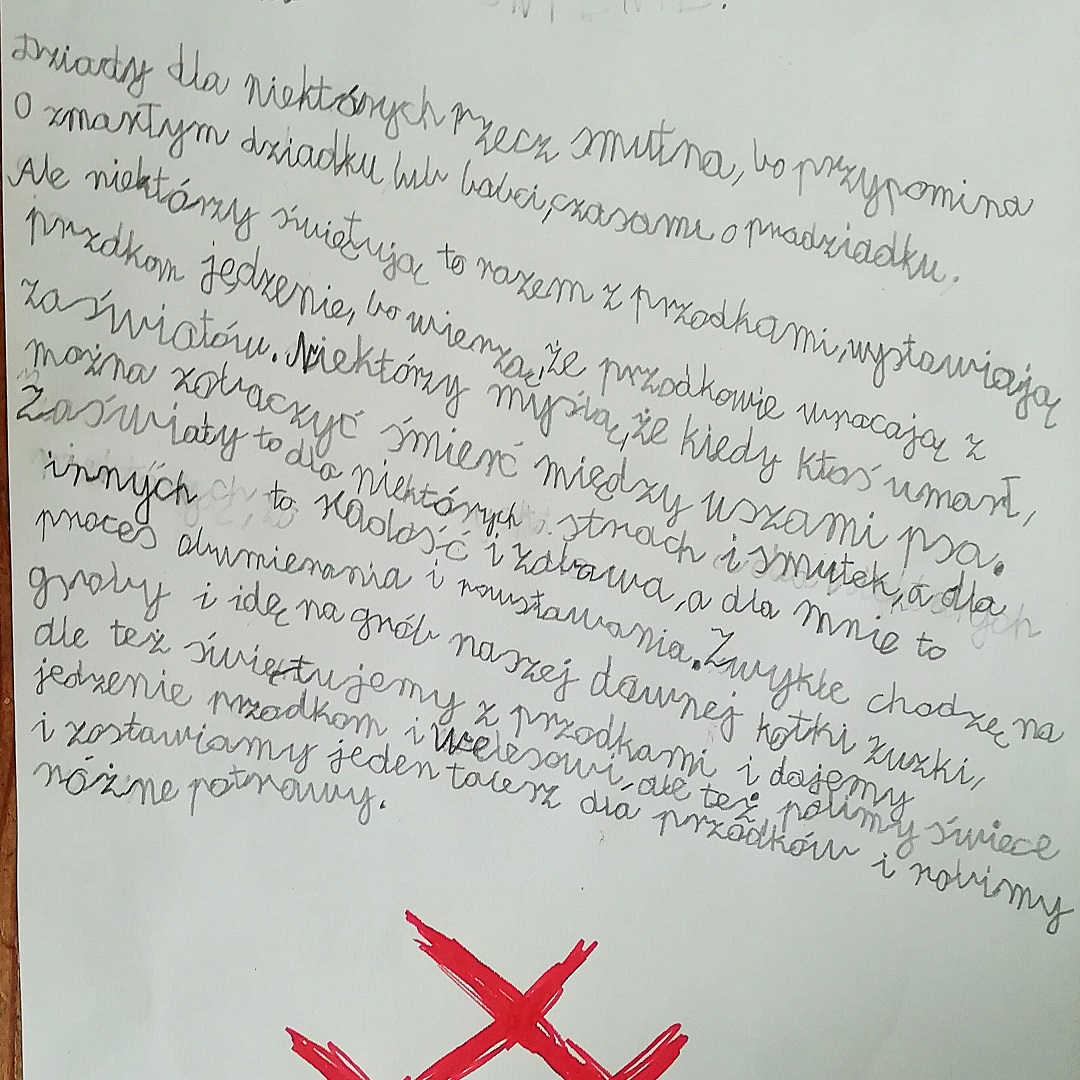 Dziady dla niektórych rzecz smutna, bo przypomina
o zmarłym dziadku lub babci, czasami o pradziadku.
Ale niektórzy świętują to razem z przodkami, wystawiają
przdkom jędzenie, bo wierzą, że przodkowie wracają z
zaświatów. Niektórzy myślą, że kiedy ktoś umarł,
można zobaczyć śmierć między uszami psa.
Zaświaty to dla niektórych strach i smutek, a dla
innych to radość i zabawa, a dla mnie to
proces obumierania i powstawania. Zwykle chodzę na
groby i idę na grób naszej dawnej kotki Zuzki,
ale też świętujemy z przodkami i dajemy
jedzenie przodkom i Welesowi, ale też palimy świece
i zostawiamy jeden talerz dla przodków i robimy
różne potrawy.